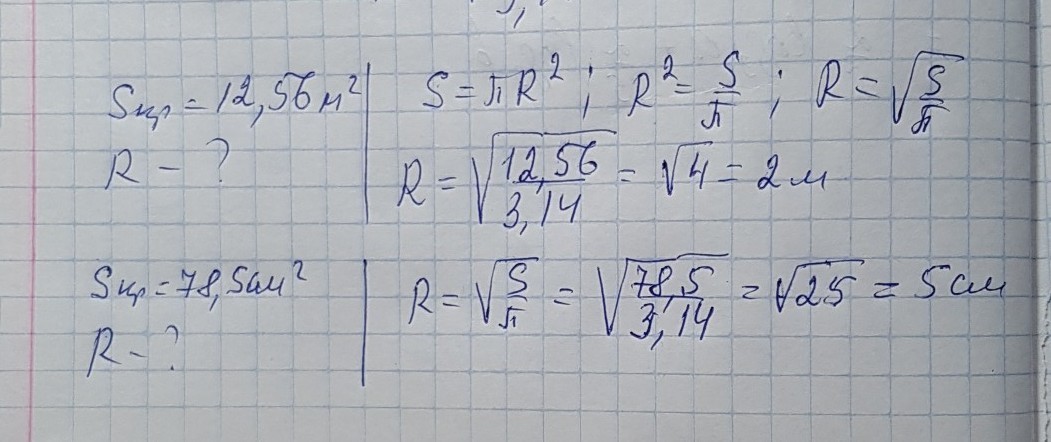 Sкр = 12,56 м² | S = πR²; R² = S/π; R = √(S/π)
R - ? | R = √(12,56/3,14) = √4 = 2 м
Sкр = 78,5 см² | R = √(S/π) = √(78,5/3,14) = √25 = 5 см
R - ?